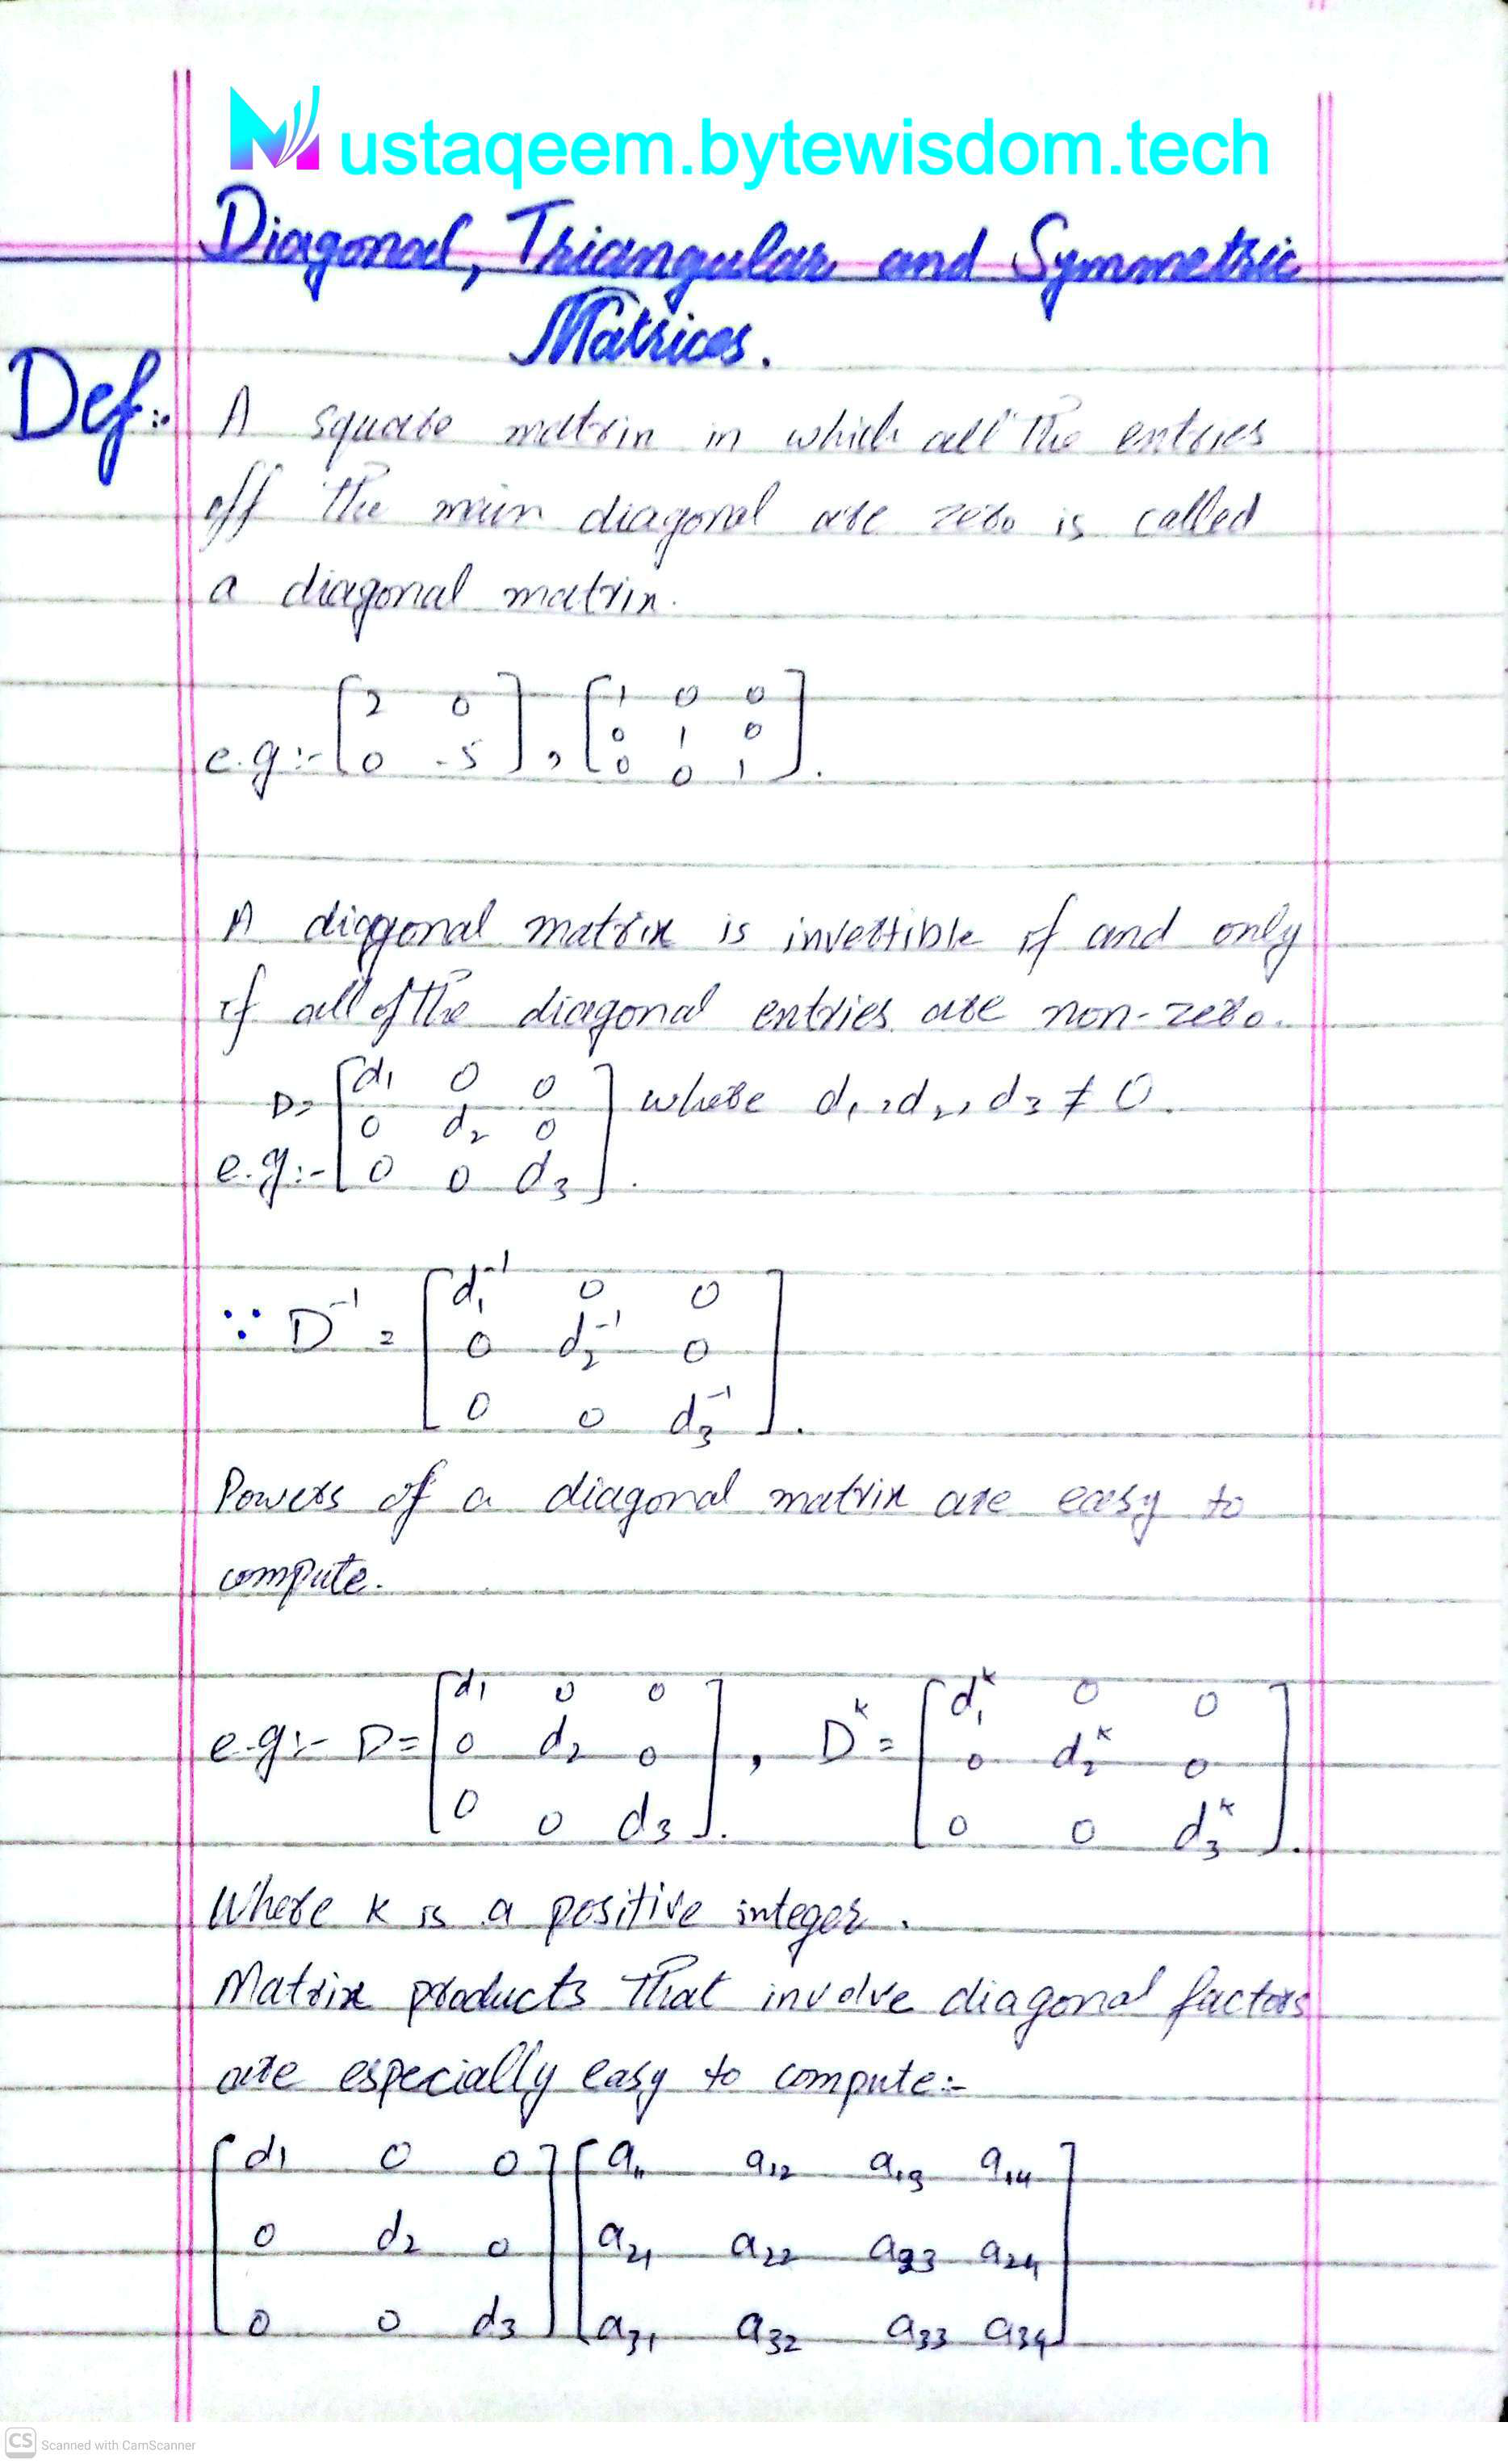 Mustaqeem.bytewisdom.tech
Diagonal, Triangular and Symmetric
Matrices.
Def:- A square matrix in which all the entries
off the main diagonal are zero is called
a diagonal matrix.
e.g:- [2 0; 0 -5], [1 0 0; 0 1 0; 0 0 1].
A diagonal matrix is invertible if and only
if all of the diagonal entries are non-zero.
e.g:- D= [d₁ 0 0; 0 d₂ 0; 0 0 d₃]. where d₁, d₂, d₃ ≠ 0.
∵ D⁻¹ = [d₁⁻¹ 0 0; 0 d₂⁻¹ 0; 0 0 d₃⁻¹].
Powers of a diagonal matrix are easy to
compute.
e.g:- D= [d₁ 0 0; 0 d₂ 0; 0 0 d₃]., Dᵏ = [d₁ᵏ 0 0; 0 d₂ᵏ 0; 0 0 d₃ᵏ].
Where k is a positive integer.
Matrix products that involve diagonal factors
are especially easy to compute:-
[d₁ 0 0; 0 d₂ 0; 0 0 d₃] [a₁₁ a₁₂ a₁₃ a₁₄; a₂₁ a₂₂ a₂₃ a₂₄; a₃₁ a₃₂ a₃₃ a₃₄]
CS Scanned with CamScanner